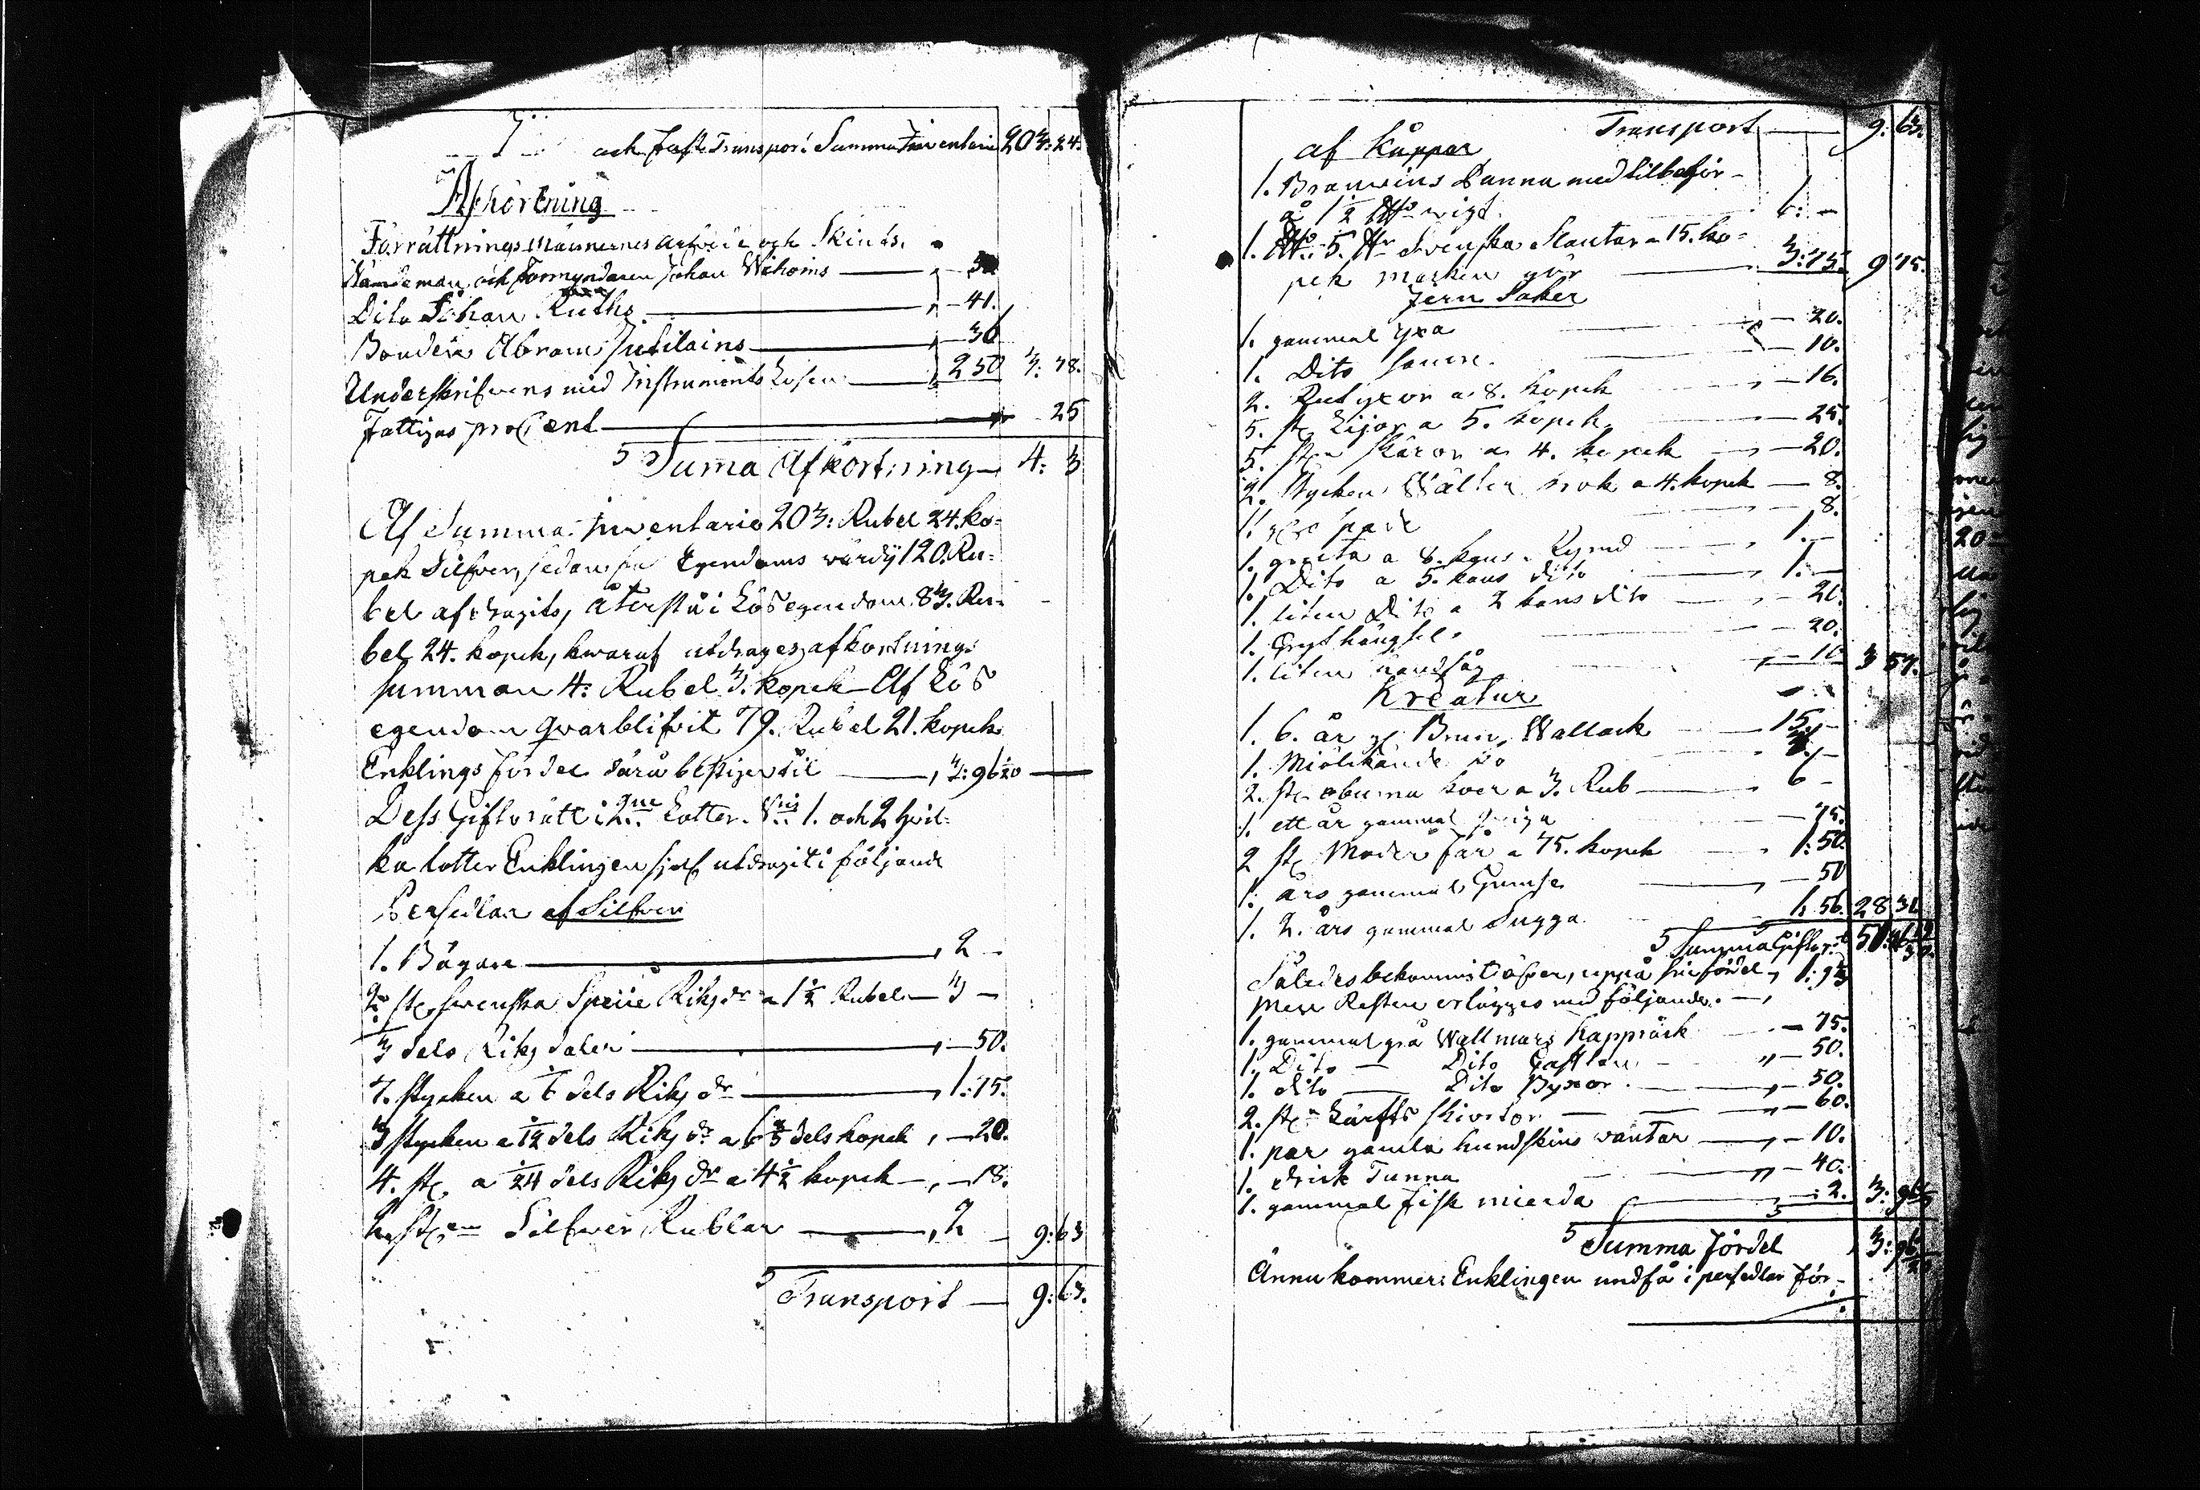 och fast Transport Summa Inventarie 203: 24.
Afkortning
Förrättnings Männernes arfvode och Skiuts.
Nämdeman och Förmyndaren Johan Wihoins
Dito Johan Ruths — 41.
Bonden Abram Jutilains — 36
Underskrifvens med Instruments Lösen — 2 50 3: 78.
Fattigas pro Cent — 25
Suma Afkortning — 4: 3
Af Summa inventario 203: Rubel 24. ko-
pek Silfver, sedan Egendoms värdij 120. Ru-
bel afdragits, återstå i Lös egendom 83. Ru-
bel 24. kopek, hwaraf utdrages afkortnings
summan 4: Rubel 3. kopek — Af Lös
egendom qvarblifvit 79. Rubel 21. kopek
Enklings fördel därå bestiger til — 3: 96 1/20
Dess Giftorätt i 2ne Lotter. N:is 1. och 2 hvil-
ka lotter Enklingen sjelf utdragit i följande
Persedlar af Silfver
1. Bägare — 2 —
2. st. Svenska Speiie Riks dr a 1 1/2 Rubel — 3 —
1/3 dels Riks daler — 50.
7. stycken a 1/6 dels Riks dr — 1:75.
3 stycken a 1/12 dels Riks dr a 6 2/3 dels kopek — 20.
4. st. a 1/24 dels Riks dr a 4 1/2 kopek — 18.
2 st. Silfver Rublar — 2 — 9:63
Transport — 9:63.
Transport — 9:63.
af Kåppar
1. Brännvins Panna med tilbehör
a 1 1/2 wigt. 6: —
1. 5. Svenska Slantar a 15. ko-
pek marken gör — 3:75. 9 75.
Jern Saker
1. gammal yxa — 20.
1. Dito samre. — 10.
2. yxor a 8. kopek — 16.
5. st. Lijor a 5. kopek — 25.
5. st. Skäror a 4. kopek — 20.
2. stycken Wälter krok a 4. kopek — 8.
1. spade — 8.
1. gryta a 8. kans Rymd — 1. —
1. Dito a 5. kans dito — 1. —
1. liten Dito a 2 kans dito — 20.
1. Grythängsel — 20.
1. liten handsåg — 10 3 57.
Kreatur
1. 6. år gl Brun Wallack — 15 —
1. Miölckande ko
2. st. oburna koer a 3. Rub — 6 —
1. ett år gammal qviga — 75.
2 st. Moder får a 75. kopek — 1:50.
1. års gammal Gumse — 50
1. 2. års gammal Sugga — 1. 56. 28 31.
Summa Giftorät
Således bekommit öfver, uppå sin fördel, 1:
Mera Resten erlägges med följande. —
1. gammal grå Wallmars kappråck — 75.
1. Dito — Dito Caftan — 50.
1. dito — Dito Byxor. — 50.
2. st. Lärfts skiortor — 60.
1. par gamla hundskins vantar — 10.
1. drick Tunna — 40.
1. gammal fisk mierda — 2. 3: 96
Summa fördel 3: 96
Ännu kommer Enklingen undfå i persedlar för